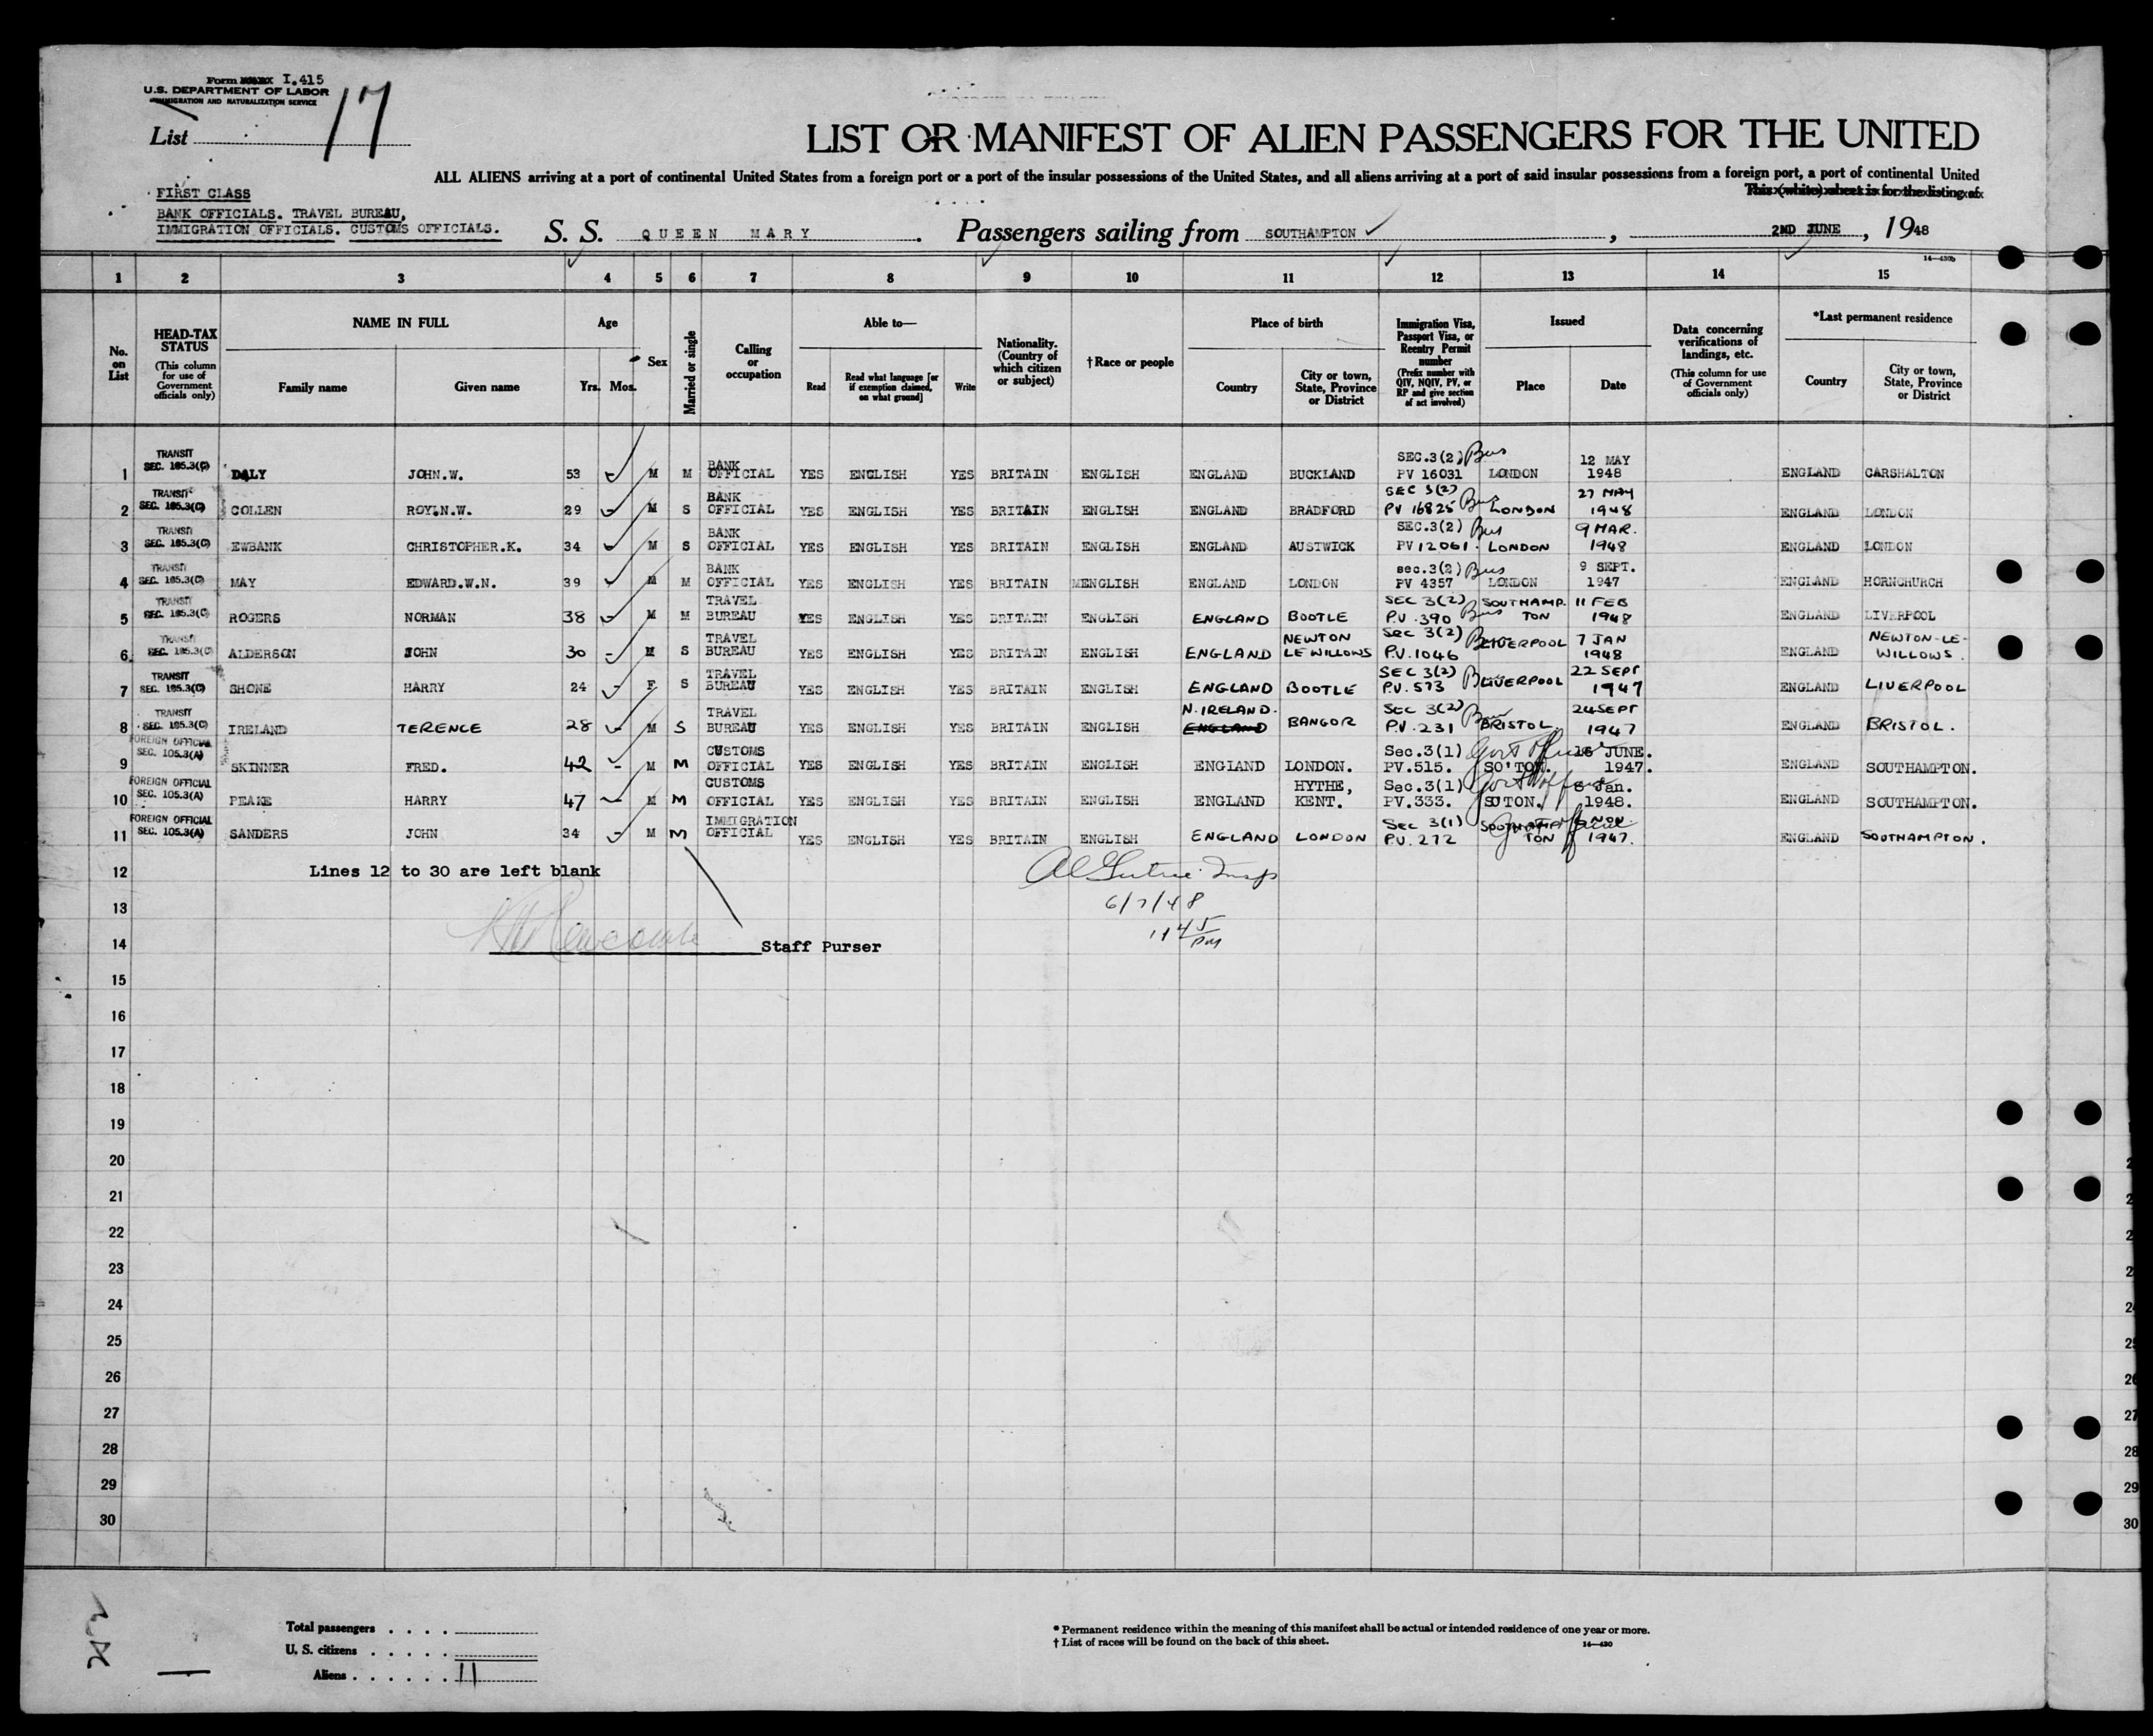 Form I.415
U.S. DEPARTMENT OF LABOR
IMMIGRATION AND NATURALIZATION SERVICE
List 17
LIST OR MANIFEST OF ALIEN PASSENGERS FOR THE UNITED
ALL ALIENS arriving at a port of continental United States from a foreign port or a port of the insular possessions of the United States, and all aliens arriving at a port of said insular possessions from a foreign port, a port of continental United
This (white) sheet is for the listing of
FIRST CLASS
BANK OFFICIALS. TRAVEL BUREAU,
IMMIGRATION OFFICIALS. CUSTOMS OFFICIALS.
S. S. QUEEN MARY. Passengers sailing from SOUTHAMPTON, 2ND JUNE, 1948
14—430b
1 2 3 4 5 6 7 8 9 10 11 12 13 14 15
No. on List
HEAD-TAX STATUS (This column for use of Government officials only)
NAME IN FULL
Family name Given name
Age
Yrs. Mos.
Sex
Married or single
Calling or occupation
Able to—
Read Read what language [or if exemption claimed, on what ground] Write
Nationality. (Country of which citizen or subject)
†Race or people
Place of birth
Country City or town, State, Province or District
Immigration Visa, Passport Visa, or Reentry Permit number (Prefix number with QIV, NQIV, PV, or RP and give section of act involved)
Issued
Place Date
Data concerning verifications of landings, etc. (This column for use of Government officials only)
*Last permanent residence
Country City or town, State, Province or District
1 TRANSIT SEC. 105.3(C) DALY JOHN.W. 53 - M M BANK OFFICIAL YES ENGLISH YES BRITAIN ENGLISH ENGLAND BUCKLAND SEC.3(2) Bus PV 16031 LONDON 12 MAY 1948 ENGLAND CARSHALTON
2 TRANSIT SEC. 105.3(C) COLLEN ROY.N.W. 29 - M S BANK OFFICIAL YES ENGLISH YES BRITAIN ENGLISH ENGLAND BRADFORD SEC 3(2) Bus PV 16825 LONDON 27 MAY 1948 ENGLAND LONDON
3 TRANSIT SEC. 105.3(C) EWBANK CHRISTOPHER.K. 34 - M S BANK OFFICIAL YES ENGLISH YES BRITAIN ENGLISH ENGLAND AUSTWICK SEC.3(2) Bus PV 12061. LONDON 9 MAR. 1948 ENGLAND LONDON
4 TRANSIT SEC. 105.3(C) MAY EDWARD.W.N. 39 - M M BANK OFFICIAL YES ENGLISH YES BRITAIN ENGLISH ENGLAND LONDON sec.3(2) Bus PV 4357 LONDON 9 SEPT. 1947 ENGLAND HORNCHURCH
5 TRANSIT SEC. 105.3(C) ROGERS NORMAN 38 - M M TRAVEL BUREAU YES ENGLISH YES BRITAIN ENGLISH ENGLAND BOOTLE SEC 3(2) Bus P.V. 390 SOUTHAMPTON 11 FEB 1948 ENGLAND LIVERPOOL
6 TRANSIT SEC. 105.3(C) ALDERSON JOHN 30 - M S TRAVEL BUREAU YES ENGLISH YES BRITAIN ENGLISH ENGLAND NEWTON LE WILLOWS SEC 3(2) Bus P.V. 1046 LIVERPOOL 7 JAN 1948 ENGLAND NEWTON-LE-WILLOWS.
7 TRANSIT SEC. 105.3(C) SHONE HARRY 24 - F S TRAVEL BUREAU YES ENGLISH YES BRITAIN ENGLISH ENGLAND BOOTLE SEC 3(2) Bus P.V. 573 LIVERPOOL 22 SEPT 1947 ENGLAND LIVERPOOL
8 TRANSIT SEC. 105.3(C) IRELAND TERENCE 28 - M S TRAVEL BUREAU YES ENGLISH YES BRITAIN ENGLISH N. IRELAND. ENGLAND BANGOR SEC 3(2) Bus P.V. 231 BRISTOL 24 SEPT 1947 ENGLAND BRISTOL.
9 FOREIGN OFFICIAL SEC. 105.3(A) SKINNER FRED. 42 - M M CUSTOMS OFFICIAL YES ENGLISH YES BRITAIN ENGLISH ENGLAND LONDON. Sec.3(1) Govt Official PV.515. SO'TON. JUNE. 1947. ENGLAND SOUTHAMPTON.
10 FOREIGN OFFICIAL SEC. 105.3(A) PEAKE HARRY 47 - M M CUSTOMS OFFICIAL YES ENGLISH YES BRITAIN ENGLISH ENGLAND HYTHE, KENT. Sec.3(1) Govt Official PV.333. SO'TON. Jan. 1948. ENGLAND SOUTHAMPTON.
11 FOREIGN OFFICIAL SEC. 105.3(A) SANDERS JOHN 34 - M M IMMIGRATION OFFICIAL YES ENGLISH YES BRITAIN ENGLISH ENGLAND LONDON SEC 3(1) Govt Official P.V. 272 SOUTHAMPTON NOV 1947. ENGLAND SOUTHAMPTON.
12 Lines 12 to 30 are left blank
13 6/7/48
14 Staff Purser 11 45 PM
15
16
17
18
19
20
21
22
23
24
25
26
27
28
29
30
Total passengers
U. S. citizens
Aliens 11
* Permanent residence within the meaning of this manifest shall be actual or intended residence of one year or more.
† List of races will be found on the back of this sheet.
14—430